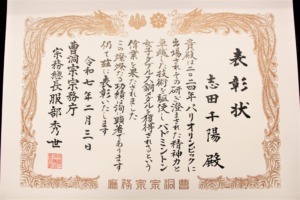 表彰状
志田千陽殿
貴殿は二〇二四年パリオリンピックに
出場されその研ぎ澄まされた精神力と
卓越した技術を駆使しバドミントン
女子ダブルス銅メダル獲得されるという
偉業を果たされました
この燦然たる功績は洵に顕著であります
仍て茲に表彰いたします
令和七年二月三日
曹洞宗宗務庁
宗務総長服部秀世
曹洞宗宗務庁